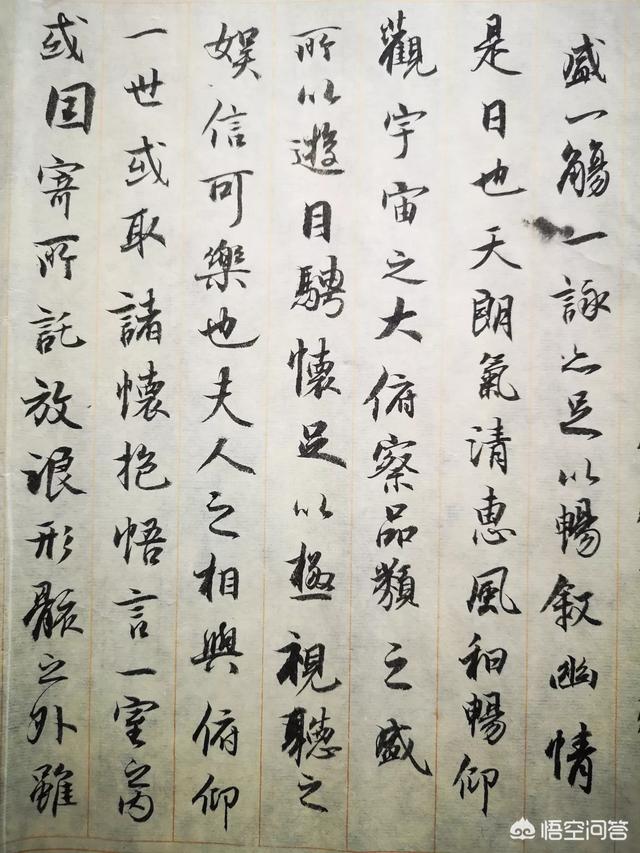 盛一觴一詠亦足以暢叙幽情
是日也天朗氣清恵風和暢仰
觀宇宙之大俯察品類之盛
所以遊目騁懷足以極視聽之
娛信可樂也夫人之相與俯仰
一世或取諸懷抱悟言一室之內
或因寄所託放浪形骸之外雖
悟空问答